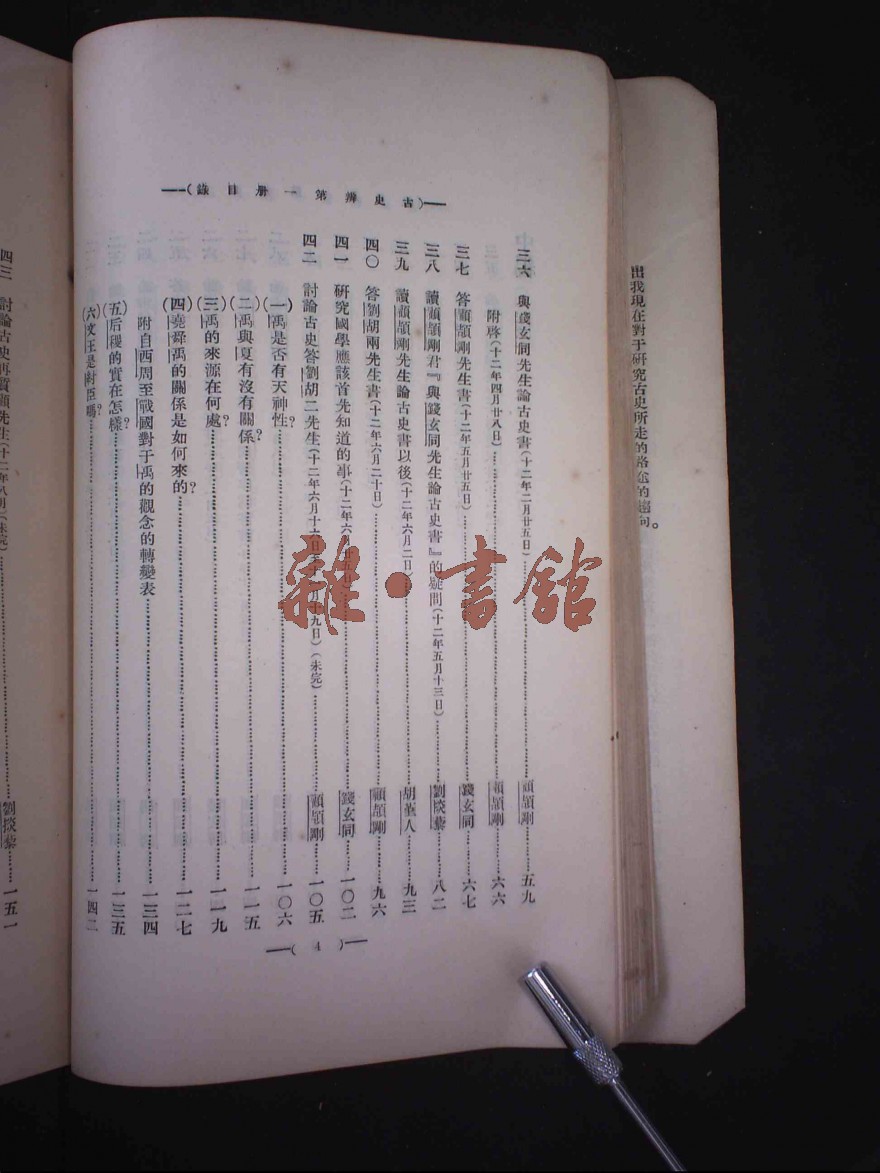 出我現在對于研究古史所走的路途的趨向。
(古史辨第一册目錄)
三六 與錢玄同先生論古史書(十二年二月廿五日)……顧頡剛……五九
附啓(十二年四月廿八日)……顧頡剛……六六
三七 答顧頡剛先生書(十二年五月廿五日)……錢玄同……六七
三八 讀顧頡剛君『與錢玄同先生論古史書』的疑問(十二年五月十三日)……劉掞藜……八二
三九 讀顧頡剛先生論古史書以後(十二年六月二日)……胡堇人……九三
四〇 答劉胡兩先生書(十二年六月二十日)……顧頡剛……九六
四一 研究國學應該首先知道的事(十二年六……日)……錢玄同……一〇二
四二 討論古史答劉胡二先生(十二年六月十六日……月十九日)(未完)……顧頡剛……一〇五
(一)禹是否有天神性?……一〇六
(二)禹與夏有沒有關係?……一一五
(三)禹的來源在何處?……一一九
(四)堯舜禹的關係是如何來的?……一二七
附自西周至戰國對于禹的觀念的轉變表……一三四
(五)后稷的實在怎樣?……一三五
(六)文王是紂臣嗎?……一四二
(4)
四三 討論古史再質顧先生(十二年八月)(未完)……劉掞藜……一五一
雜·書館